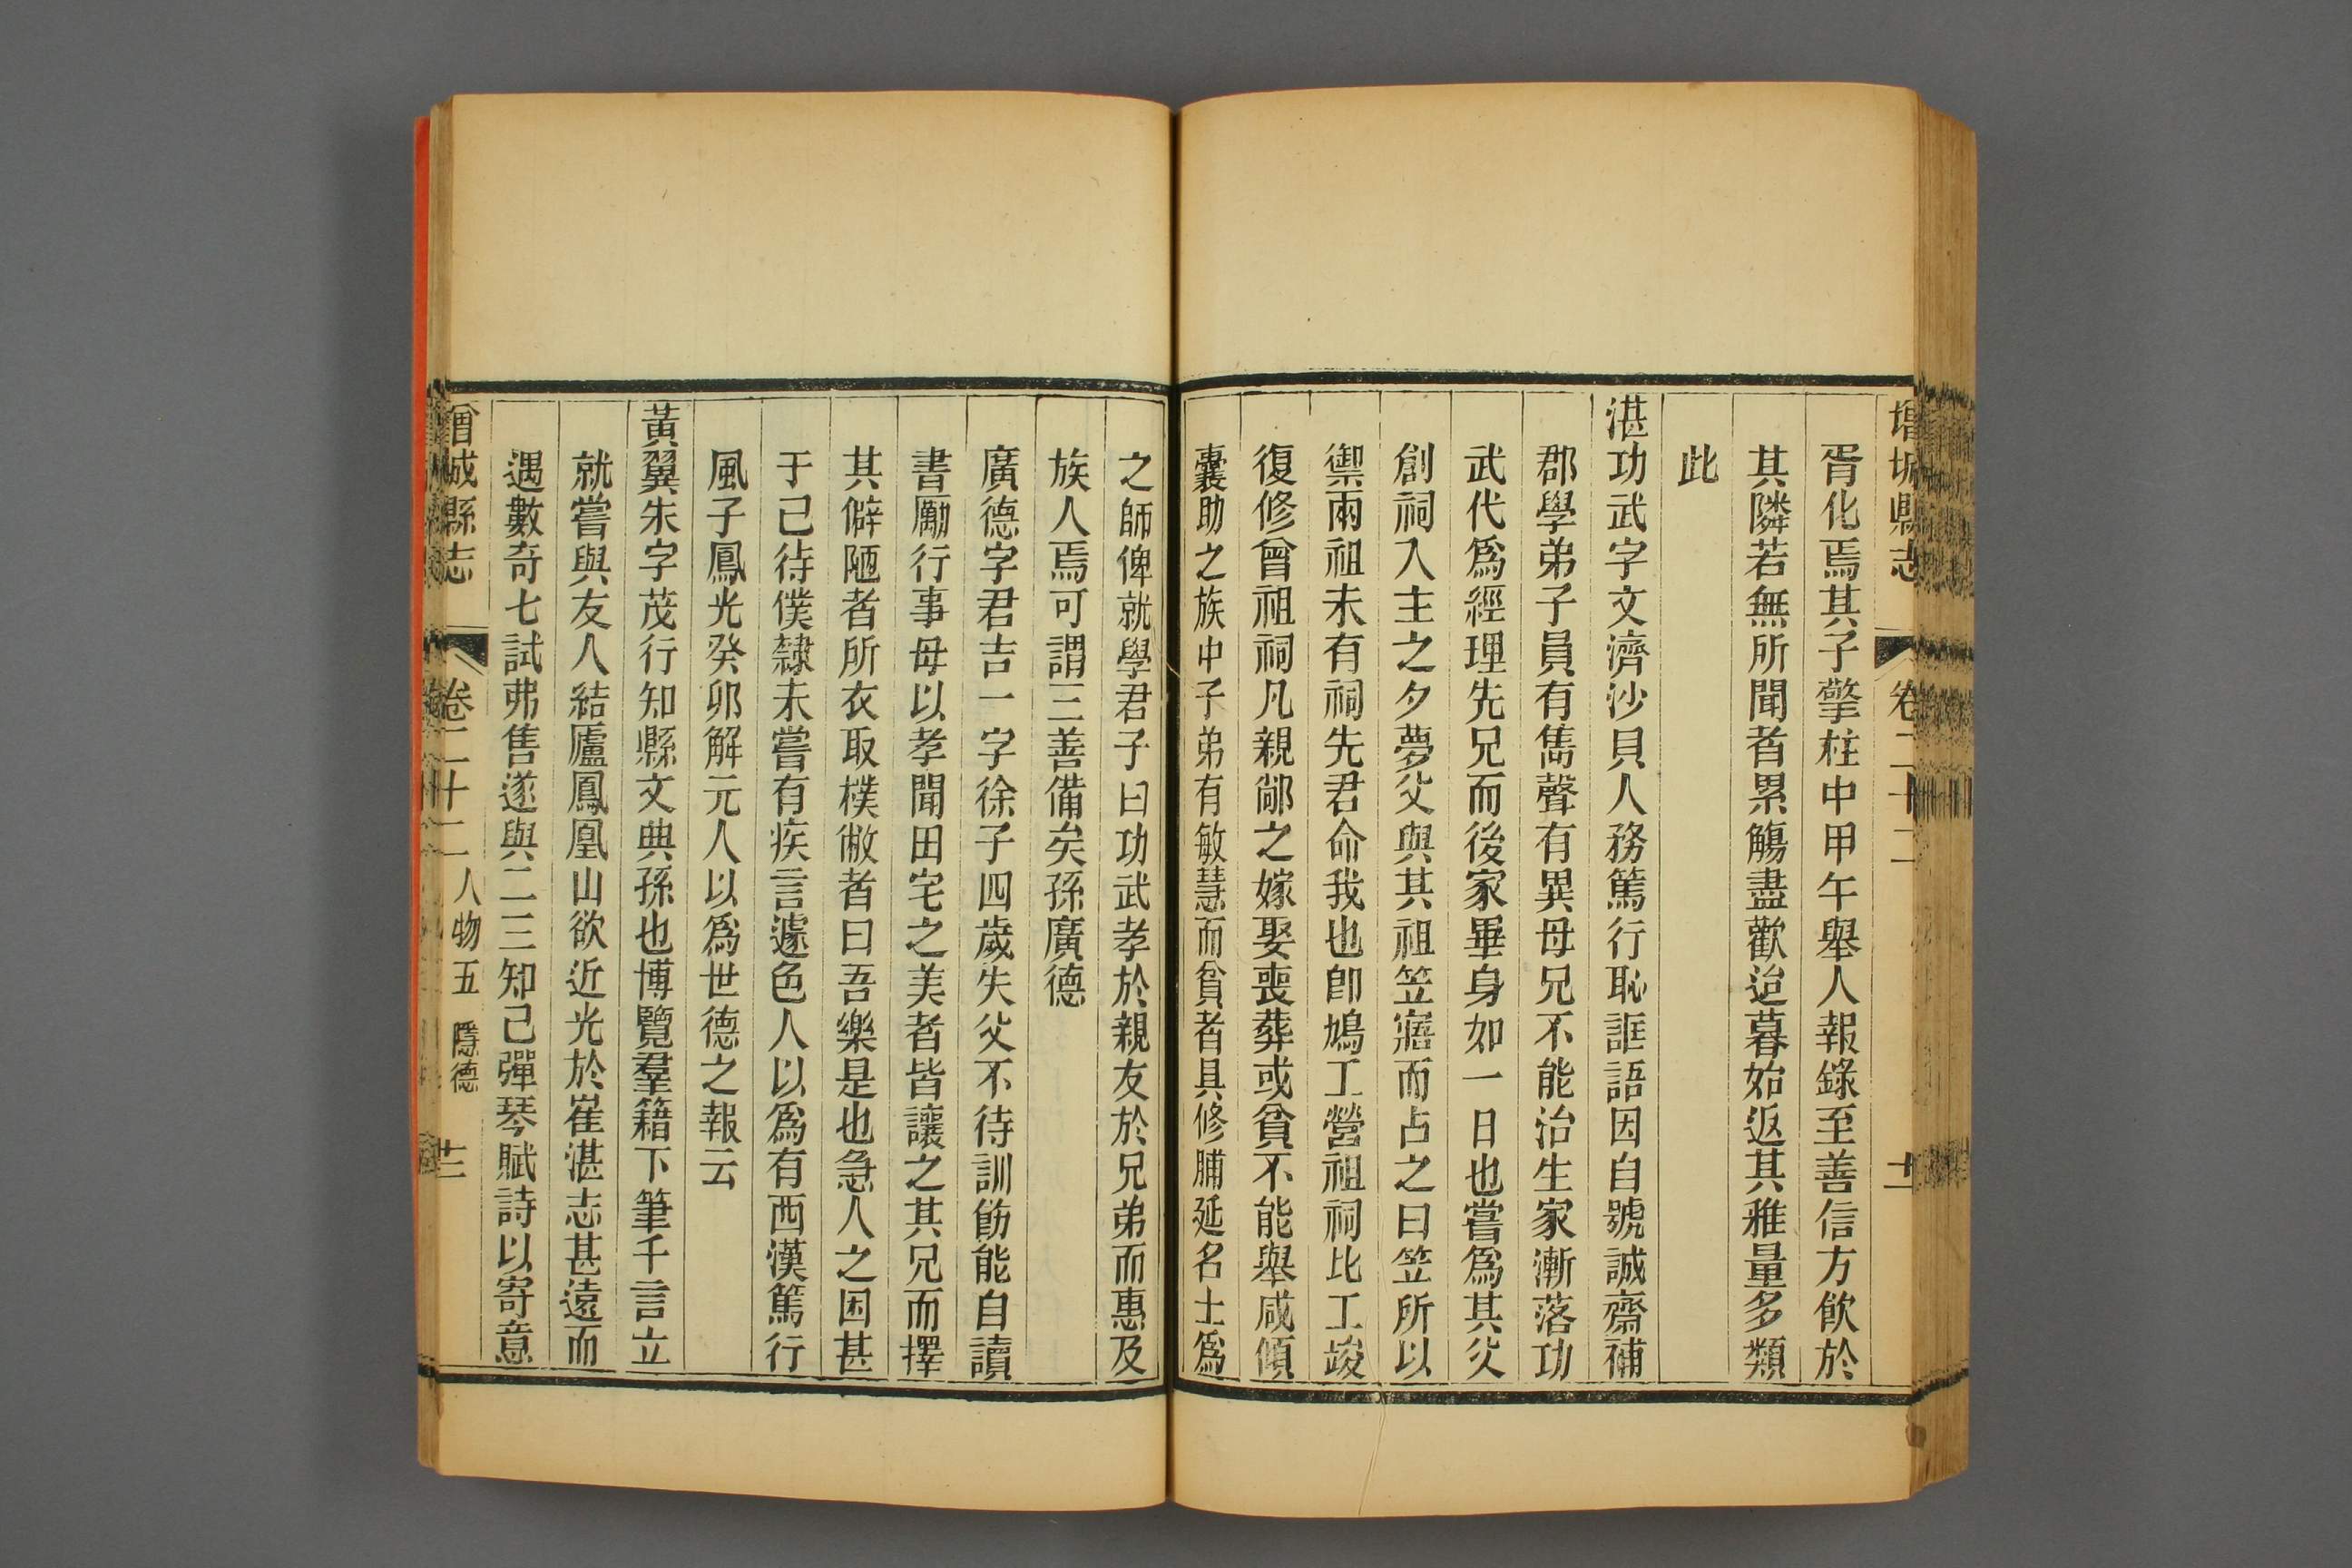 增城縣志 卷二十二
胥化焉其子擎柱中甲午舉人報錄至善信方飲於
其隣若無所聞者累觴盡歡迨暮始返其雅量多類
此
湛功武字文濟沙貝人務篤行恥誑語因自號誠齋補
郡學弟子員有雋聲有異母兄不能治生家漸落功
武代爲經理先兄而後家畢身如一日也嘗爲其父
創祠入主之夕夢父與其祖笠寤而占之曰笠所以
禦雨祖未有祠先君命我也卽鳩工營祖祠比工竣
復修曾祖祠凡親鄰之嫁娶喪葬或貧不能舉咸傾
囊助之族中子弟有敏慧而貧者具修脯延名士爲
之師俾就學君子曰功武孝於親友於兄弟而惠及
族人焉可謂三善備矣孫廣德
廣德字君吉一字徐子四歲失父不待訓飭能自讀
書勵行事母以孝聞田宅之美者皆讓之其兄而擇
其僻陋者所衣取樸敝者曰吾樂是也急人之困甚
于己待僕隸未嘗有疾言遽色人以爲有西漢篤行
風子鳳光癸卯解元人以爲世德之報云
黃翼朱字茂行知縣文典孫也博覽羣籍下筆千言立
就嘗與友人結廬鳳凰山欲近光於崔湛志甚遠而
遇數奇七試弗售遂與二三知己彈琴賦詩以寄意
曾城縣志 卷二十二 人物五 隱德